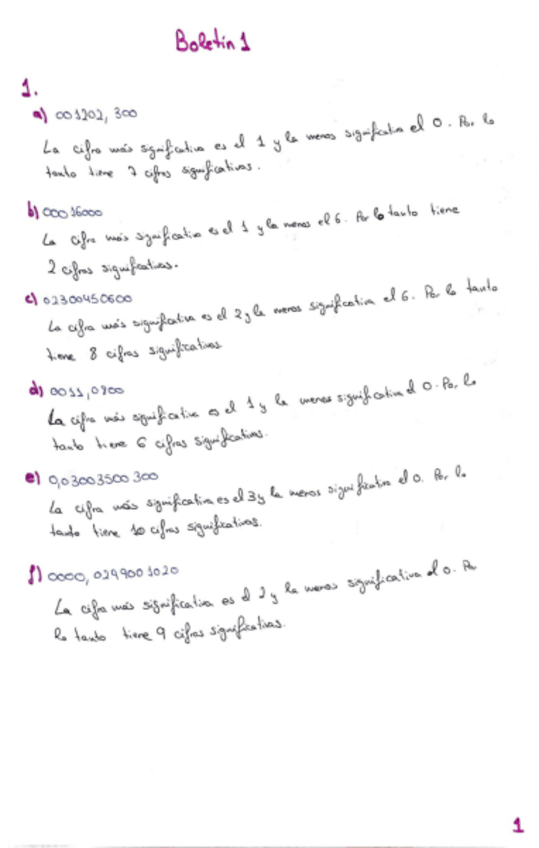 Boletín 1
1.
a) 001202, 300
La cifra más significativa es el 1 y la menos significativa el 0. Por lo
tanto tiene 7 cifras significativas.
b) 00016000
La cifra más significativa es el 1 y la menos el 6. Por lo tanto tiene
2 cifras significativas.
c) 02300450600
La cifra más significativa es el 2 y la menos significativa el 6. Por lo tanto
tiene 8 cifras significativas
d) 0011,0800
La cifra más significativa es el 1 y la menos significativa el 0. Por lo
tanto tiene 6 cifras significativas.
e) 0,03003500 300
La cifra más significativa es el 3 y la menos significativa el 0. Por lo
tanto tiene 10 cifras significativas.
f) 0000, 0299001020
La cifra más significativa es el 2 y la menos significativa el 0. Por
lo tanto tiene 9 cifras significativas.
1